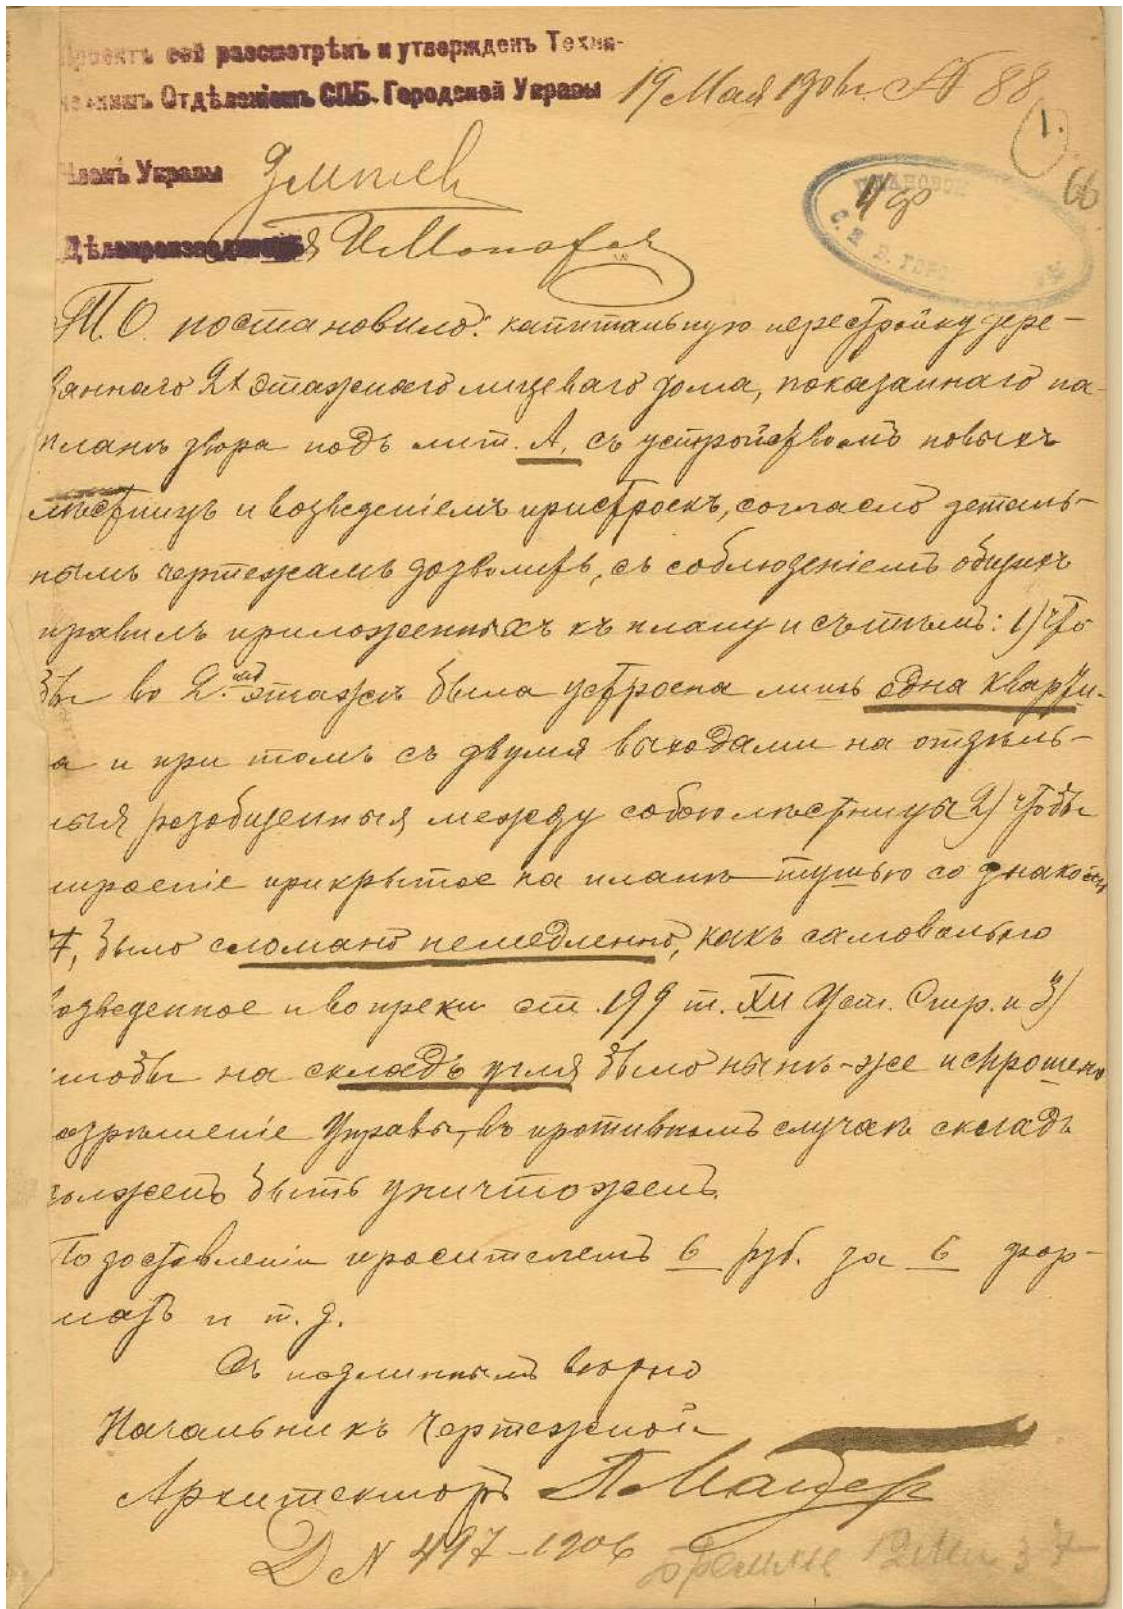 Проектъ сей разсмотрѣнъ и утвержденъ Техни-
ческимъ Отдѣленiемъ СПБ. Городской Управы
19 Мая 1906 г. № 88
1.
Членъ Управы
66
Дѣлопроизводитель
Т.О. постановило: капитальную перестройку дере-
вяннаго 2х этажнаго лицеваго дома, показаннаго на
планѣ двора подъ лит. А, съ устройствомъ новыхъ
лѣстницъ и возведенiемъ пристроекъ, согласно деталь-
нымъ чертежамъ дозволить, съ соблюденiемъ общихъ
правилъ приложенныхъ къ плану и съ тѣмъ: 1) что
бы во 2.мъ этажѣ была устроена лишь одна кварти-
а и при томъ съ двумя выходами на отдѣль-
ныя разобщенныя между собою лѣстницы 2) чтобы
строенiе прикрытое на планѣ тушью со знакомъ
, было сломано немедленно, какъ самовольно
возведенное и вопреки ст. 199 т. XII Уст. Стр. и 3)
чтобы на складъ угля было нынѣ-же испрошено
разрѣшенiе Управы, въ противномъ случаѣ складъ
долженъ быть уничтоженъ.
По доставленiи просителемъ 6 руб. за 6 фор-
матъ и т.д.
Съ подлиннымъ вѣрно
Начальникъ Чертежной
Архитекторъ
Д № 497-1906